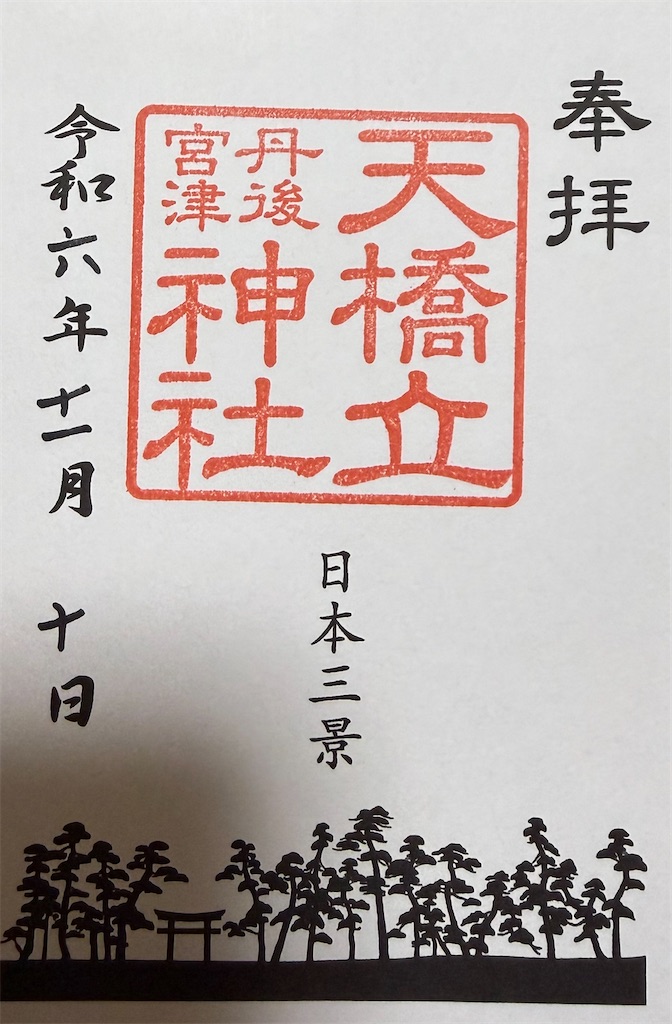 奉拝
天橋立
丹後
宮津
神社
日本三景
令和六年十一月 十日